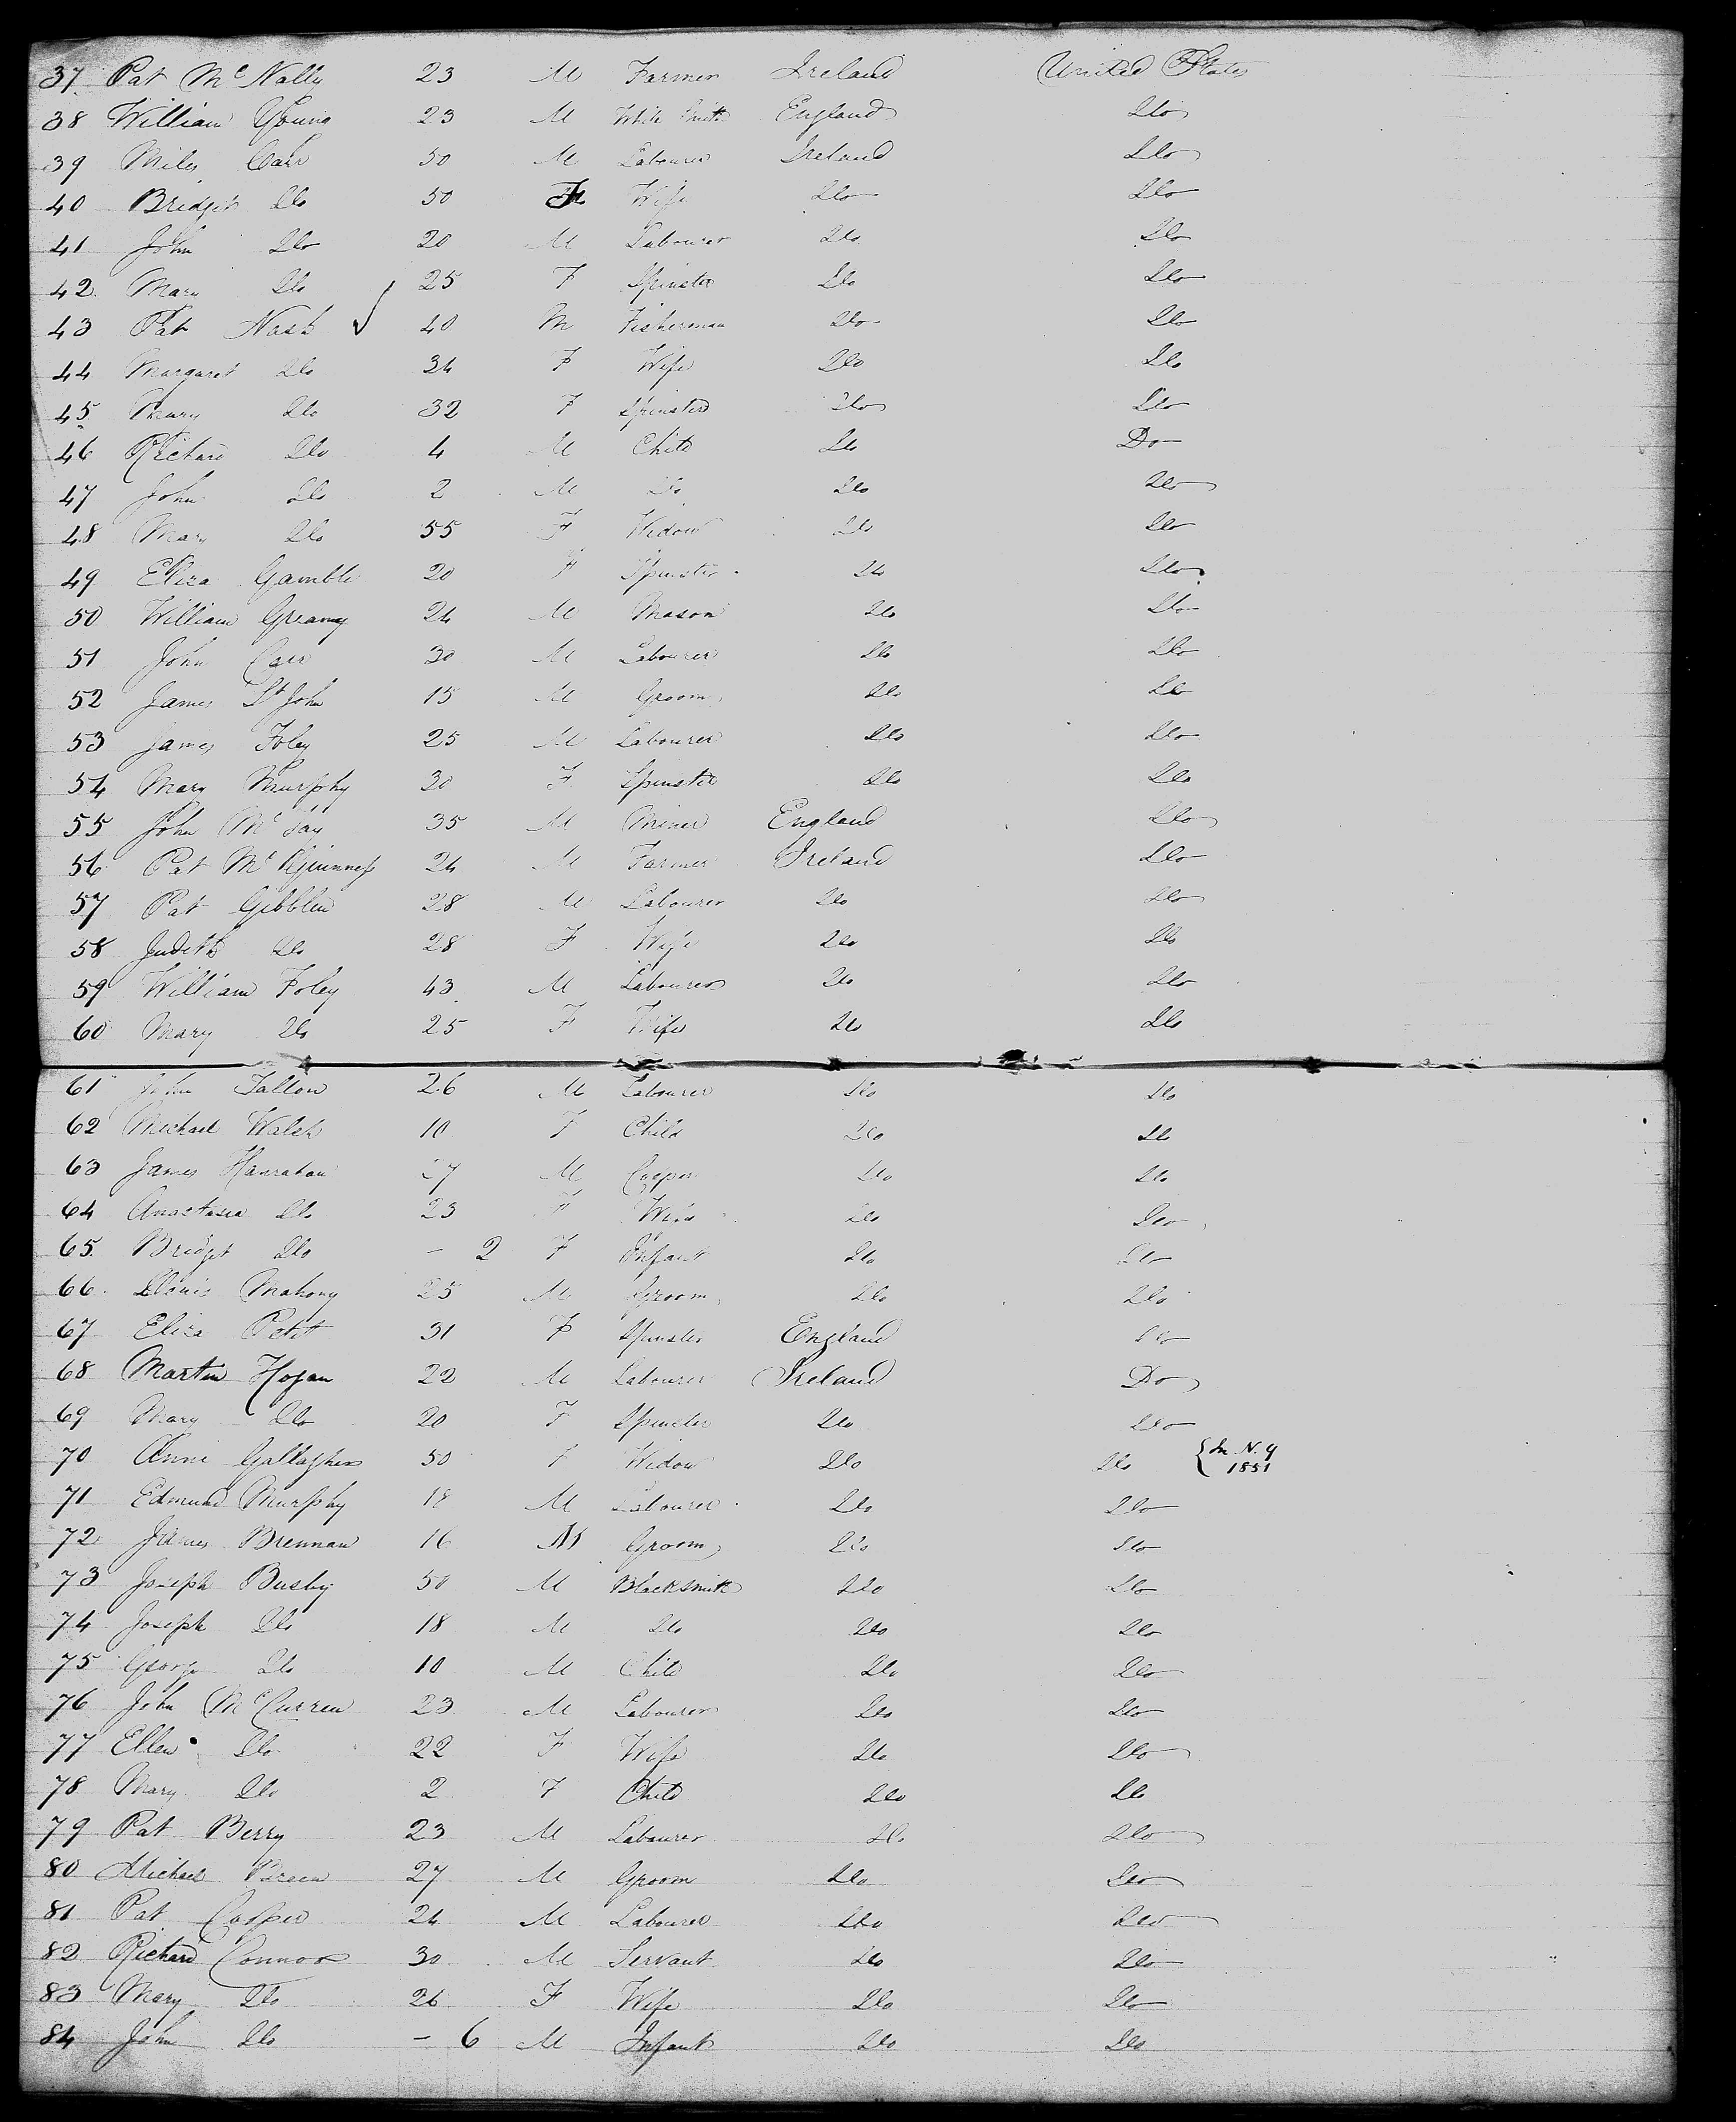 37 Pat McNally 23 M Farmer Ireland United States
38 William Young 23 M White Smith England Do
39 Miles Carr 50 M Labourer Ireland Do
40 Bridget Do 50 F Wife Do Do
41 John Do 20 M Labourer Do Do
42 Mary Do 25 F Spinster Do Do
43 Pat Nash 40 M Fisherman Do Do
44 Margaret Do 34 F Wife Do Do
45 Mary Do 32 F Spinster Do Do
46 Richard Do 4 M Child Do Do
47 John Do 2 M Do Do Do
48 Mary Do 55 F Widow Do Do
49 Eliza Gamble 20 F Spinster Do Do
50 William Greany 24 M Mason Do Do
51 John Carr 30 M Labourer Do Do
52 James St John 15 M Groom Do Do
53 James Foley 25 M Labourer Do Do
54 Mary Murphy 30 F Spinster Do Do
55 John 35 M Miner England Do
56 Pat McGuinness 24 M Farmer Ireland Do
57 Pat Gibblin 28 M Labourer Do Do
58 Judith Do 28 F Wife Do Do
59 William Foley 43 M Labourer Do Do
60 Mary Do 25 F Wife Do Do
61 John Fallon 26 M Labourer Do Do
62 Michael Walsh 10 F Child Do Do
63 James Hanrahan 27 M Cooper Do Do
64 Anastasia Do 23 F Wife Do Do
65 Bridget Do - 2 F Infant Do Do
66 Denis Mahony 25 M Groom Do Do
67 Eliza Petit 31 F Spinster England Do
68 Martin Hogan 22 M Labourer Ireland Do
69 Mary Do 20 F Spinster Do Do
70 Anne Gallagher 50 F Widow Do Do { In N.Y 1851
71 Edmund Murphy 18 M Labourer Do Do
72 James Brennan 16 M Groom Do Do
73 Joseph Busby 50 M Blacksmith Do Do
74 Joseph Do 18 M Do Do Do
75 George Do 10 M Child Do Do
76 John McCurren 23 M Labourer Do Do
77 Ellen Do 22 F Wife Do Do
78 Mary Do 2 F Child Do Do
79 Pat Berry 23 M Labourer Do Do
80 Michael Breen 27 M Groom Do Do
81 Pat Cooper 24 M Labourer Do Do
82 Richard Connor 30 M Servant Do Do
83 Mary Do 26 F Wife Do Do
84 John Do - 6 M Infant Do Do